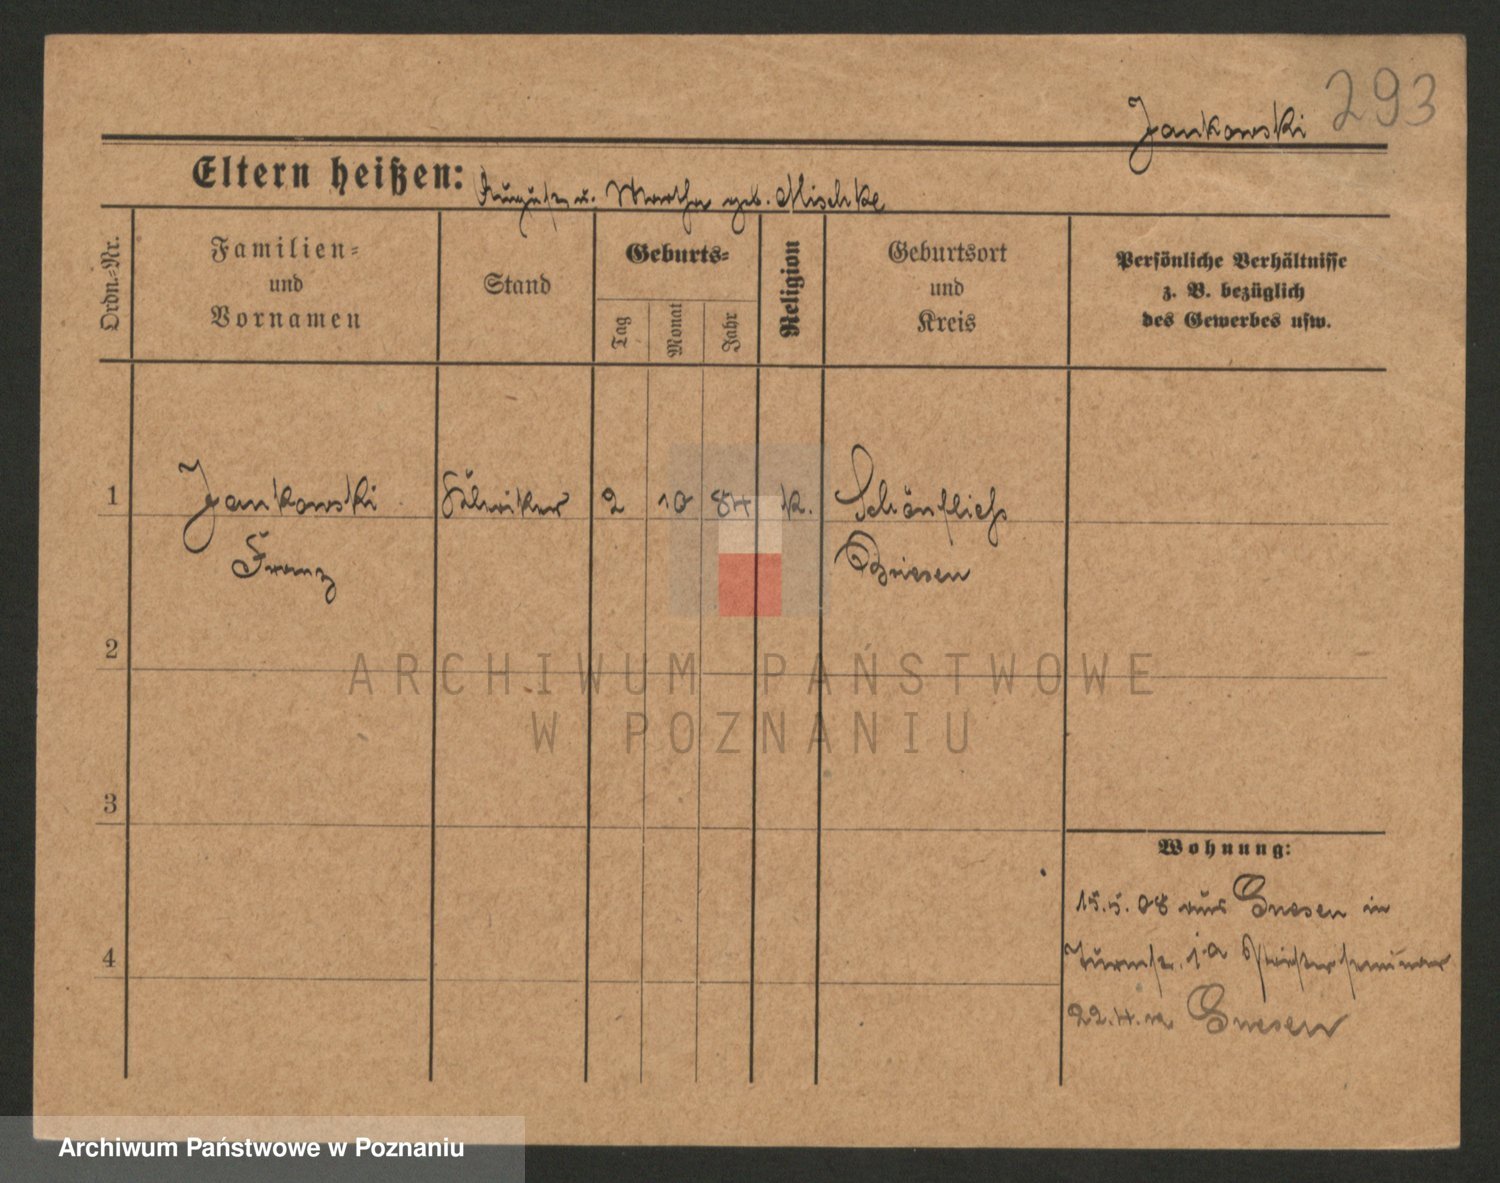 293
Jankowski
Eltern heißen: August u. Martha geb. Mischke
Ordn.=Nr.
Familien=
und
Vornamen
Stand
Geburts=
Tag
Monat
Jahr
Religion
Geburtsort
und
Kreis
Persönliche Verhältnisse
z. B. bezüglich
des Gewerbes usw.
1 Jankowski Kleriker 2 10 84 k. Schönfließ
Franz Briesen
2
ARCHIWUM PAŃSTWOWE
W POZNANIU
3
4
Wohnung:
15.5.08 aus Gnesen in
Turmstr. 10 Priesterseminar
22.4. Gnesen
Archiwum Państwowe w Poznaniu